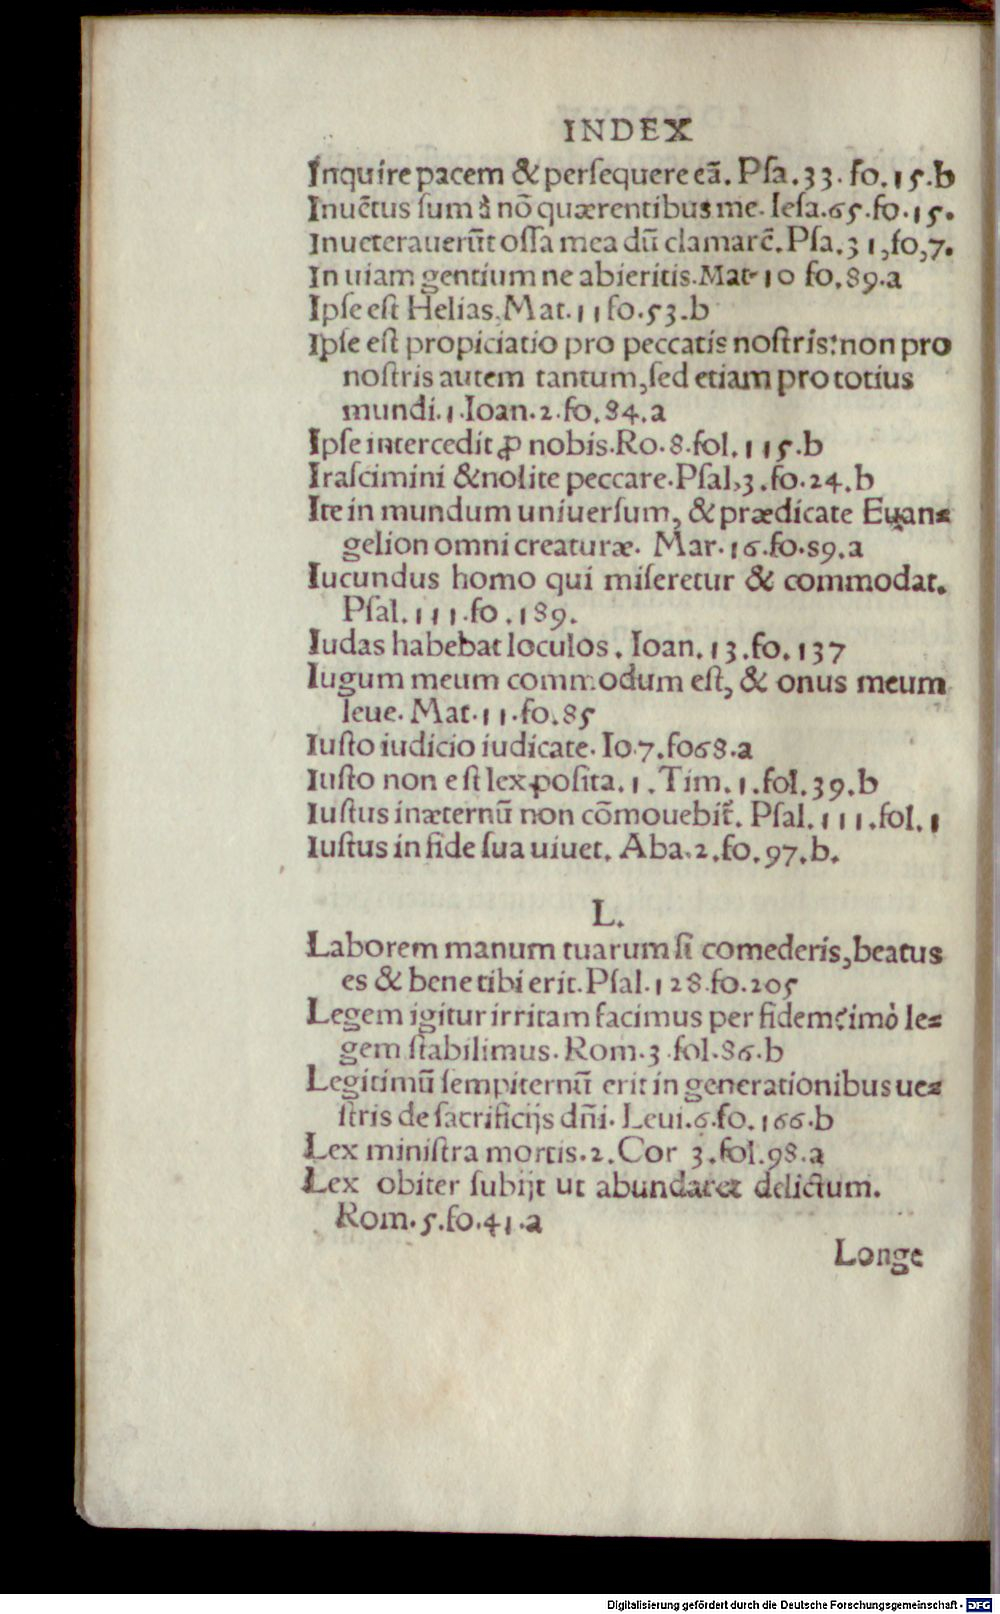 INDEX
Inquire pacem & perſequere eã. Pſa.33. fo.15.b
Inuẽtus ſum à nõ quærentibus me. Ieſa.65.fo.15.
Inueterauerũt oſſa mea dũ clamarẽ. Pſa.31,fo,7.
In uiam gentium ne abieritis. Mat.10 fo.89.a
Ipſe eſt Helias. Mat.11 fo.53.b
Ipſe eſt propiciatio pro peccatis noſtris: non pro
noſtris autem tantum, ſed etiam pro totius
mundi.1.Ioan.2.fo.84.a
Ipſe intercedit ꝓ nobis. Ro.8.fol.115.b
Iraſcimini & nolite peccare. Pſal,3.fo.24.b
Ite in mundum uniuerſum, & prædicate Euan⸗
gelion omni creaturæ. Mar.16.fo.89.a
Iucundus homo qui miſeretur & commodat.
Pſal.111.fo.189.
Iudas habebat loculos. Ioan.13.fo.137
Iugum meum commodum eſt, & onus meum
leue. Mat.11.fo.85
Iuſto iudicio iudicate. Io.7.fo68.a
Iuſto non eſt lex poſita.1. Tim.1.fol.39.b
Iuſtus in æternũ non cõmouebit̃. Pſal.111.fol.1
Iuſtus in fide ſua uiuet. Aba.2.fo.97.b.
L.
Laborem manum tuarum ſi comederis, beatus
es & bene tibi erit. Pſal.128.fo.205
Legem igitur irritam facimus per fidem? imò le⸗
gem ſtabilimus. Rom.3.fol.86.b
Legitimũ ſempiternũ erit in generationibus ue⸗
ſtris de ſacrificijs dñi. Leui.6.fo.166.b
Lex miniſtra mortis.2.Cor 3.fol.98.a
Lex obiter ſubijt ut abundaret delictum.
Rom.5.fo.41.a
Longe
Digitalisierung gefördert durch die Deutsche Forschungsgemeinschaft - DFG